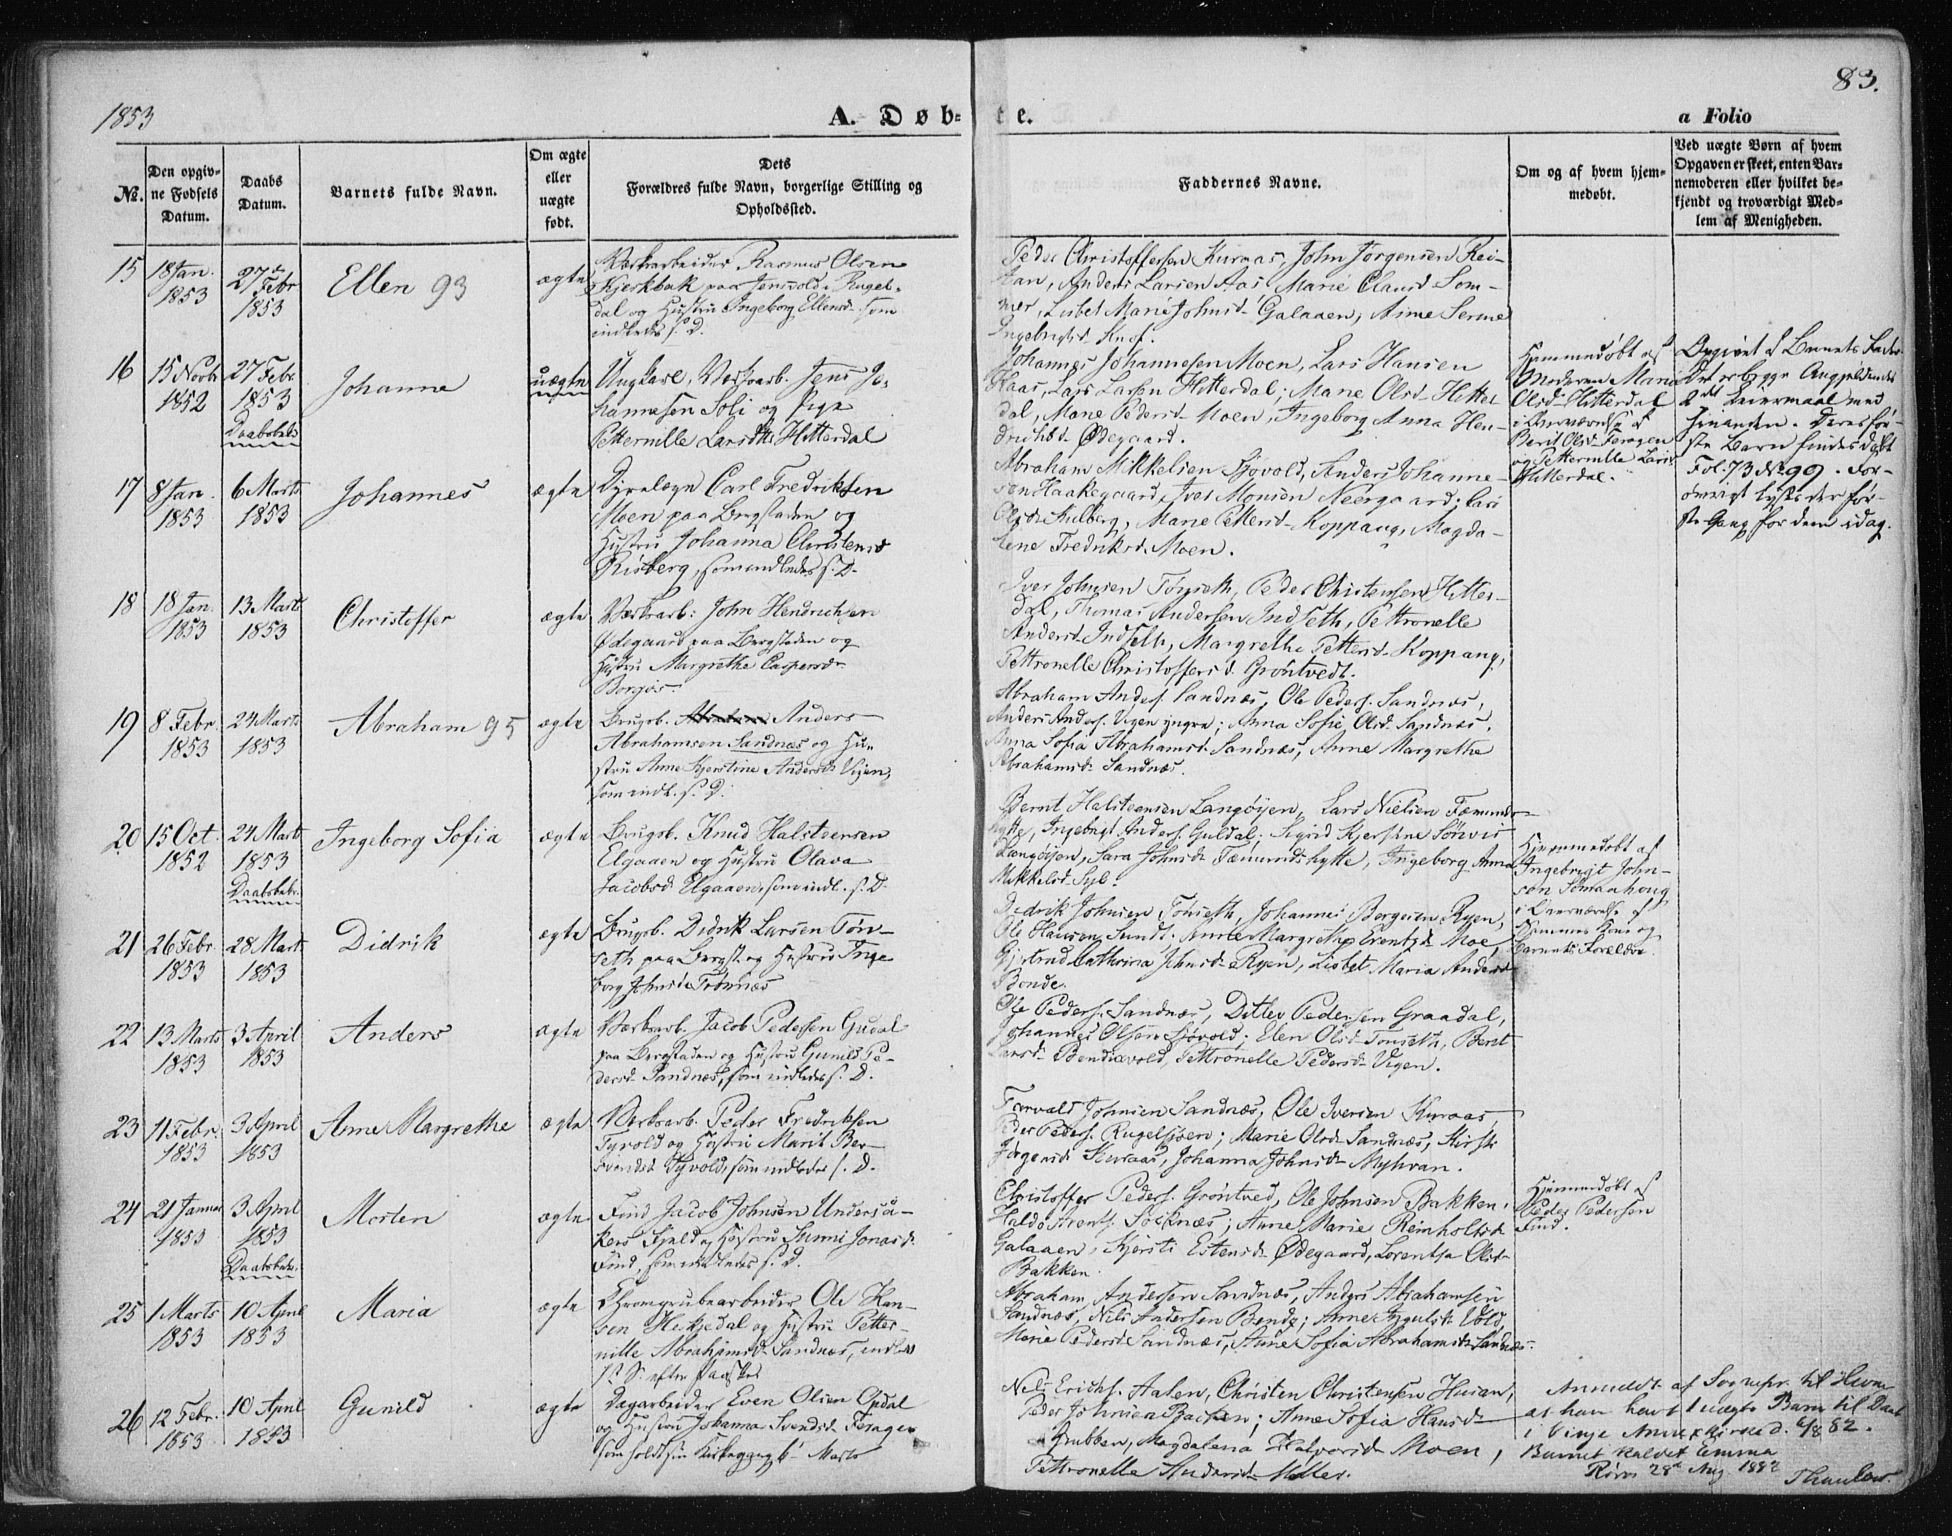 83.
1853
A. Døb-
te.
a Folio
№.
Den opgiv-
ne Fødsels
Datum.
Daabs
Datum.
Barnets fulde Navn.
Om ægte
eller
uægte
født.
Dets
Forældres fulde Navn, borgerlige Stilling og
Opholdssted.
Faddernes Navne.
Om og af hvem hjem-
medøbt.
Ved uægte Børn af hvem
Opgaven er skeet, enten Bar-
nemoderen eller hvilket be-
kjendt og troværdigt Med-
lem af Menigheden.
15
18 Jan.
1853
27de
Febr
1853
Ellen 93
ægte
Værksarbeider Rasmus Olsen
paa Jensvold i Rugel-
dal og Hustru Ingeborg Ellensd. som
indledes s. D.
Peder Christoffersen Kuraas, John Jørgensen Rei-
tan, Anders Larsen Aas, Marie Clausd. Som-
mer, Lisbet Marie Johnsd. Galaaen,
Ingebrigtsd.
16
15 Novbr
1852
27 Febr.
1853
Daabsbekr.
Johanna
uægte
Ungkarl, Værksarb. Jens Jo-
hannesen Soli og Pige
Petternille Larsdtr Hitterdal
Johannes Johannesen Moen, Lars Hansen
Aas, Lars Larsen Hitterdal; Marie Olsd. Hitter-
dal, Marie Pedersd. Moen, Ingeborg Anna Hen-
drichsd. Ødegaard.
Hjemmedøbt af
Moderen Maria
Olsd. Hitterdal
i Overværelse af
Berit Olsd. Feragen
og Petternille Larsd.
Hitterdal.
Opgivet af Barnets Fader.
Det er begge Angjeldendes
2det Leiermaal med
hinanden. Deres før-
ste Barn findes døbt
Fol. 73 № 99. For-
øvrigt lystes der før-
ste Gang for dem idag.
17
8 Jan.
1853
6 Marts
1853
Johannes
ægte
Dyrelæge Carl Fredriksen
Moen paa Bergstaden og
Hustru Johanna Christensd.
Risberg, som indledes s. D.
Abraham Mikkelsen Sjøvold, Anders Johanne-
sen Haakegaard, Iver Monsen Neergaard;
Olsd. Aulberg, Marie Pettersd. Koppang, Magda-
lene Fredriksd. Moen.
18
18 Jan.
1853
13 Marts
1853
Christoffer
ægte
Værksarb: John Hendrichsen
Ødegaard paa Bergstaden og
Hustru Margrethe Caspersd.
Borgos.
Iver Johnsen Tønseth, Peder Christensen Hitter-
dal, Thomas Andersen Indseth, Pettronelle
Andersd. Indseth, Margrethe Pettersd. Koppang,
Pettronelle Christoffersd. Grøntvedt.
19
8 Febr.
1853
24 Marts
1853
Abraham 95
ægte
Brugsb. Anders
Abrahamsen Sandnæs og Hu-
stru Anne Kjerstine Andersd. Vigen,
som indl. s. D.
Abraham Anders. Sandnæs, Ole Peders. Sandnæs,
Anders Anders. Vigen yngre; Anna Sofie Olsd. Sandnæs,
Anna Sofia Abrahamsd. Sandnæs, Anne Margrethe
Abrahamsd. Sandnæs.
20
15 Oct.
1852
24 Marts
1853
Daabsbekr.
Ingeborg Sofia
ægte
Brugsb. Knud Halsteensen
Elgaaen og Hustru Olava
Jacobsd. Elgaaen, som indl. s. D.
Bernt Halsteensen Langøijen, Lars Nielsen Fæmunds-
hytte, Ingebrigt Anders. Guldal. Sigrid Kjerstine Sørensd.
Langøijen, Sara Johnsd. Fæmundshytte, Ingeborg Anna
Mikkelsd.
Hjemmedøbt af
Ingebrigt John-
sen Sömaahoug
i Overværelse af
Sammes Kone og
Barnets Forældre.
21
26 Febr.
1853
28 Marts
1853
Didrik
ægte
Brugsb. Didrik Larsen Tøn-
seth paa Bergst. og Hustru Inge-
borg Johnsd. Trønnæs
Didrik Johnsen Tønseth, Johannes Borgesen Ryen,
Ole Hansen Sundt, Anne Margrethe Evensd. Moe,
Gjertrud Cathrina Johnsd. Ryen, Lisbet Maria Andersd.
Bonde.
22
13 Marts
1853
3 April
1853
Anders
ægte
Værksarb. Jacob Pedersen Gudal
paa Bergstaden og Hustru Gunild Pe-
dersd. Sandnæs, som indledes s. D.
Ole Peders. Sandnæs, Ditlev Pedersen Graadal,
Johannes Olsen Sjøvold; Elen Olsd. Tønseth, Berit
Larsd. Bendixvold, Pettronelle Pedersd. Vigen.
23
11 Febr.
1853
3 April
1853
Anne Margrethe
ægte
Værksarb. Peder Fredriksen
Tyvold og Hustru Marit Ber-
svendsd. Tyvold, som indledes s. D.
Torvald Johnsen Sandnæs, Ole Iversen Kuraas,
Peder Peders. Rugelsjøen; Marie Olsd. Sandnæs, Kirsti
Jørgensd. Kuraas, Johanna Johnsd. Myhran.
24
21 Januar
1853
3 April
1853
Daabsbekr.
Morten
ægte
Find Jacob Johnsen Underså-
kers Fjeld og Hustru Sunni Jonasd.
Find, som indledes s. D.
Christoffer Peders. Grøntved, Ole Johnsen Bakken,
Haldo Arents. Sollnæs; Anne Marie Reinholtsd.
Galaaen, Kjersti Estensd. Ødegaard, Lorentsa Olsd.
Bakken.
Hjemmedøbt af
Peder Pedersen
Find.
25
1 Marts
1853
10 April
1853
Maria
ægte
Chromgrubearbeider Ole Han-
sen Hitterdal og Hustru Petter-
nille Abrahamsd. Sandnæs, indledes
1ste S. efter Paaske
Abraham Andersen Sandnæs, Anders Abrahamsen
Sandnæs, Nils Andersen Bonde; Anne Ingulsd. Vold,
Marie Pedersd. Sandnæs, Anne Sofia Abrahamsd. Sandnæs.
26
12 Febr.
1853
10 April
1853
Gunild
ægte
Dagarbeider Even Olsen Opdal
og Hustru Johanna Svendsd. Feragen
som holdt sin Kirkegang 6te Marts
Nils Erichs. Aalen, Christen Christensen Husan,
Peder Johnsen Backen; Anne Sofia Hansd.
Grubben, Magdalena Halvorsd. Moen,
Pettronelle Andersd. Møller.
Anmeldt af Sognepr. til Hevne
at hun havt 1 uægte Barn til Daab
i Vinje Annexkirke d. 6/8 82.
Barnet kaldet Emma
Røros 28de Aug 1882 Thaulow.